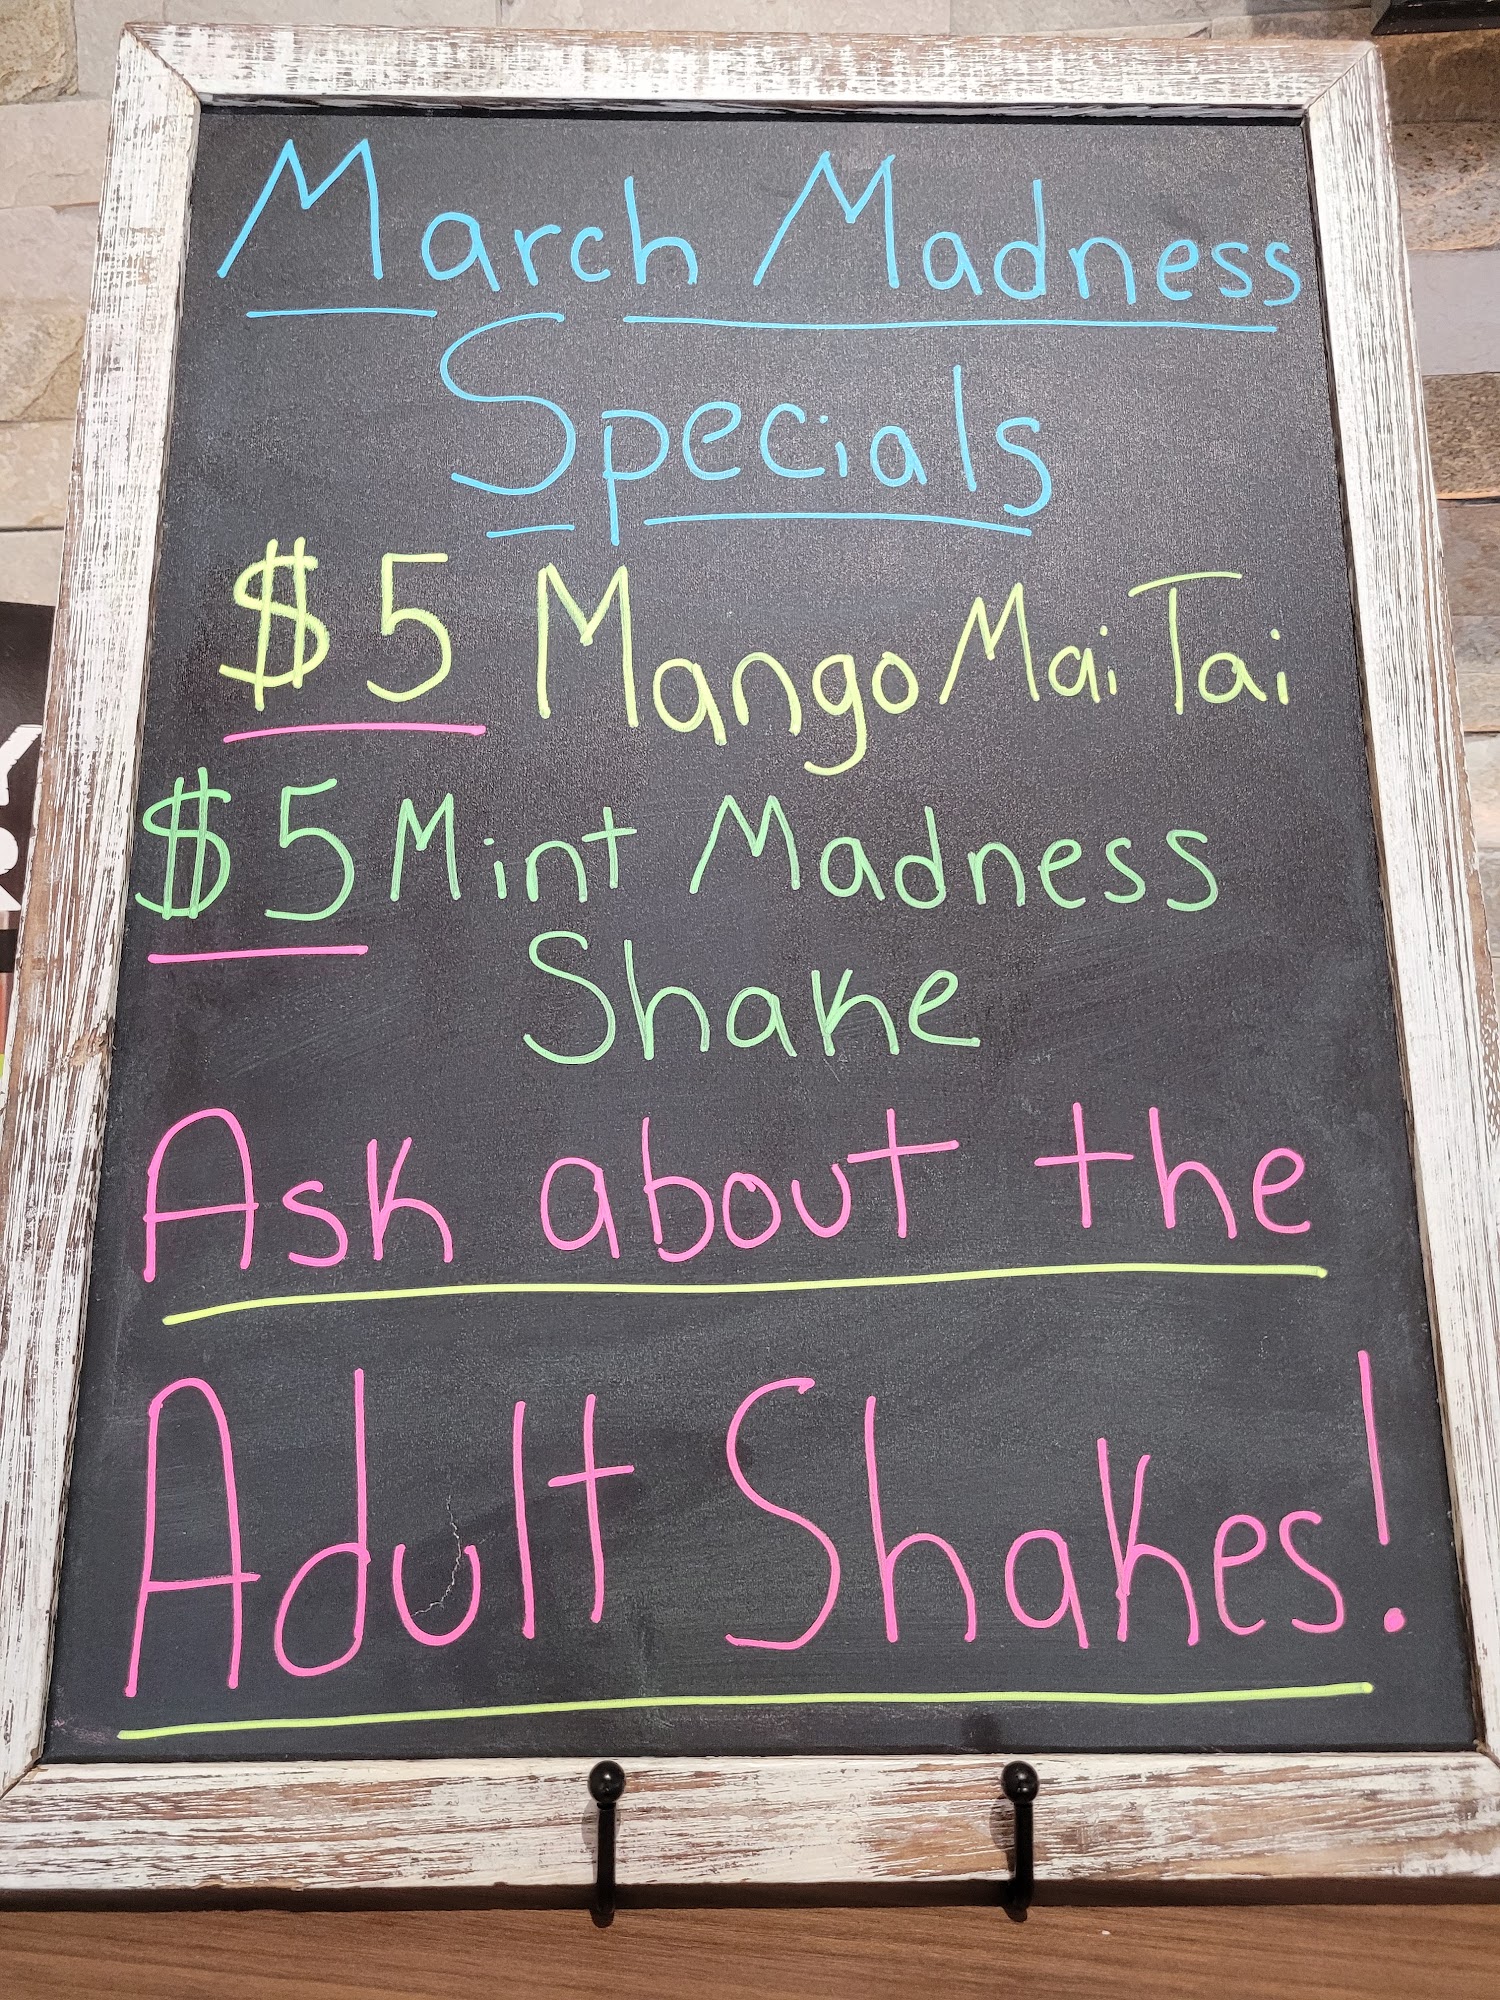 March Madness
Specials
$5 Mango Mai Tai
$5 Mint Madness
Shake
Ask about the
Adult Shakes!